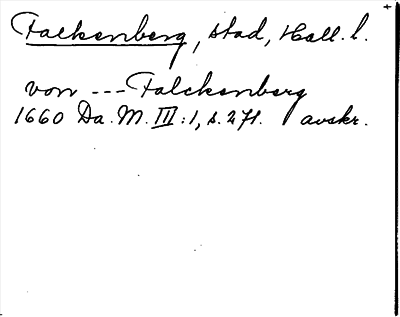 Falkenberg, stad, Hall. l.
von --- Falckenberg
1660 Da. M. III:1, s. 271. avskr.